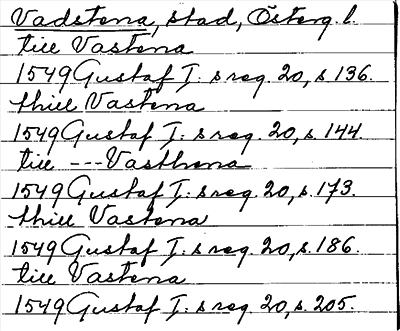 Vadstena, stad, Österg. l.
till Vastena
1549 Gustaf I: s reg. 20, s. 136.
thill Vastena
1549 Gustaf I: s reg. 20, s. 144.
till --- Vasthena
1549 Gustaf I: s reg. 20, s. 173.
thill Vastena
1549 Gustaf I: s reg. 20, s. 186.
till Vastena
1549 Gustaf I: s reg. 20, s. 205.